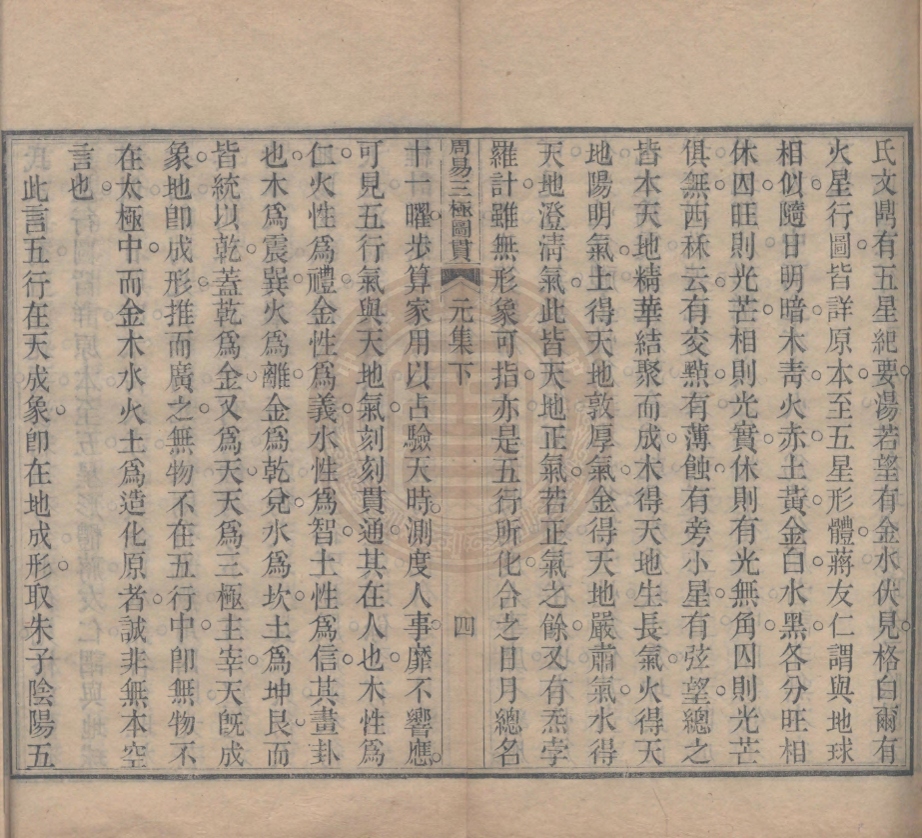 氏文鼎有五星紀要湯若望有金水伏見格白爾有
火星行圖皆詳原本至五星形體蔣友仁謂與地球
相似隨日明暗木青火赤土黃金白水黑各分旺相
休囚旺則光芒相則光實休則有光無角囚則光芒
俱無西秝云有交㸃有薄蝕有旁小星有弦望總之
皆本天地精華結聚而成木得天地生長氣火得天
地陽明氣土得天地敦厚氣金得天地嚴肅氣水得
天地澄淸氣此皆天地正氣若正氣之餘又有炁孛
羅計雖無形象可指亦是五行所化合之日月總名
周易三極圖貫 元集下 四
十一曜步算家用以占驗天時測度人事靡不響應
可見五行氣與天地氣刻刻貫通其在人也木性爲
仁火性爲禮金性爲義水性爲智土性爲信其畫卦
也木爲震巽火爲離金爲乾兌水爲坎土爲坤艮而
皆統以乾蓋乾爲金又爲天天爲三極主宰天旣成
象地卽成形推而廣之無物不在五行中卽無物不
在太極中而金木水火土爲造化原者誠非無本空
言也
此言五行在天成象卽在地成形取朱子陰陽五